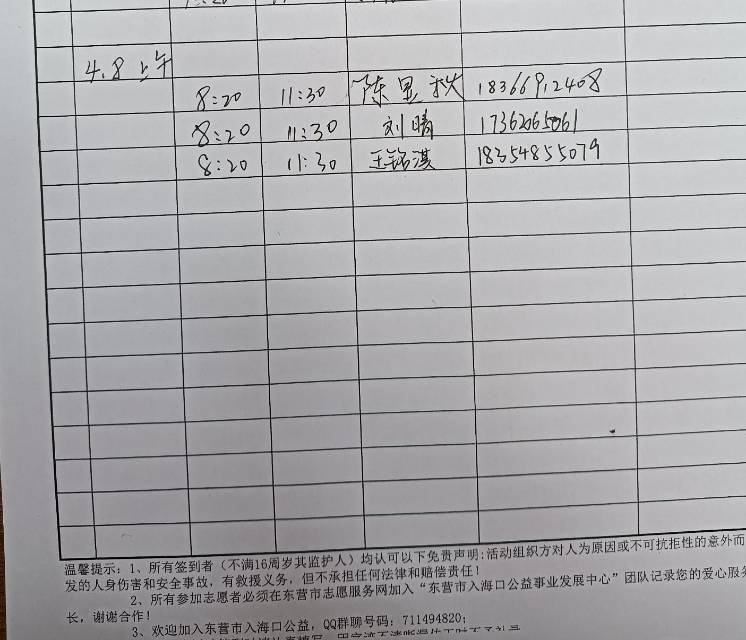 4.8 上午
8:20 11:30 陈里秋 18366912408
8:20 11:30 刘晴 17362065061
8:20 11:30 王铭淇 18354855079
温馨提示：1、所有签到者（不满16周岁其监护人）均认可以下免责声明;活动组织方对人为原因或不可抗拒性的意外而
发的人身伤害和安全事故，有救援义务，但不承担任何法律和赔偿责任！
2、所有参加志愿者必须在东营市志愿服务网加入“东营市入海口公益事业发展中心”团队记录您的爱心服务
长，谢谢合作！
3、欢迎加入东营市入海口公益，QQ群聊号码：711494820；